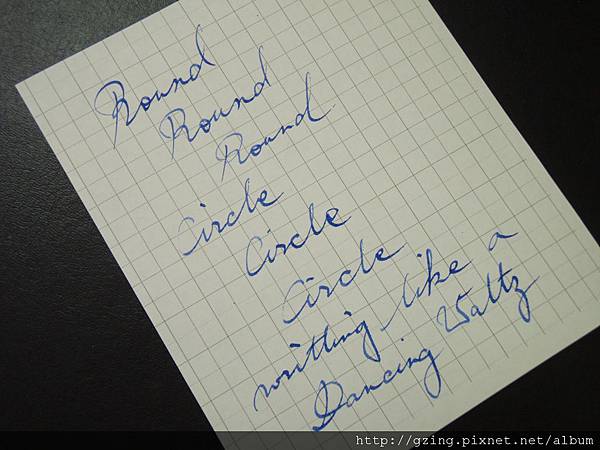 Round
Round
Round
Circle
Circle
Circle
writting like a
Dancing Waltz
http://gzing.pixnet.net/album